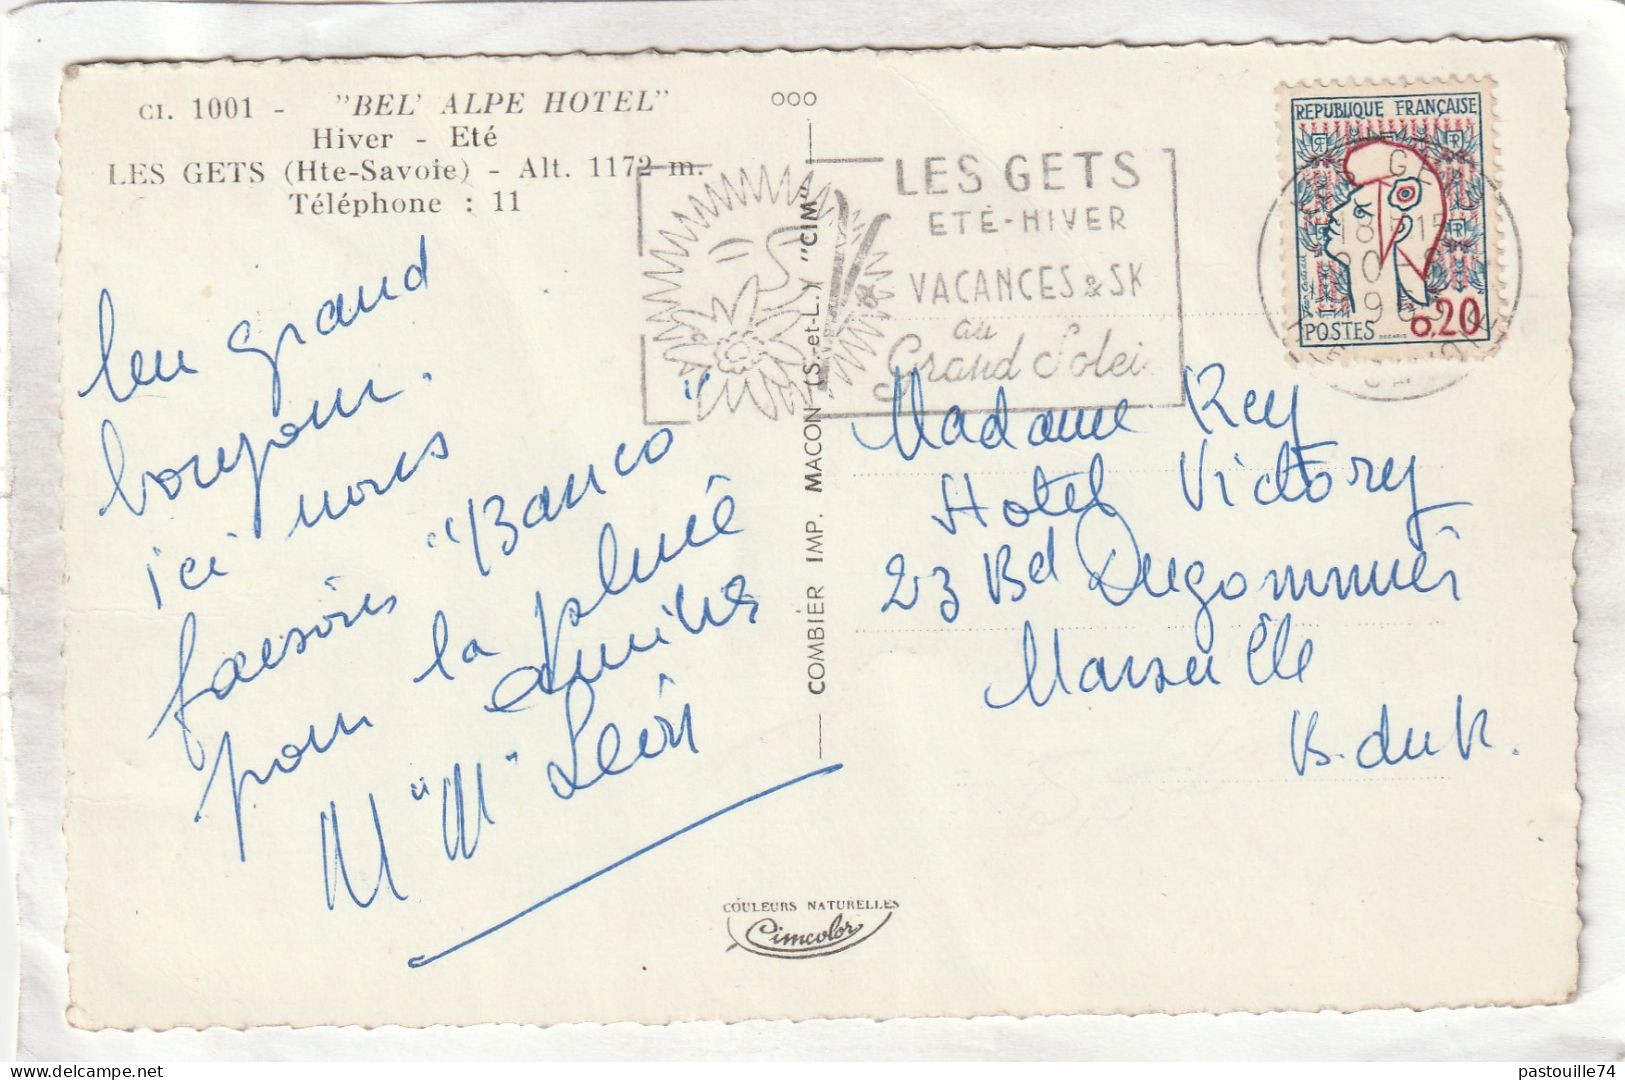 CI. 1001 - "BEL' ALPE HOTEL"
Hiver - Eté
LES GETS (Hte-Savoie) - Alt. 1172 m.
Téléphone : 11
un grand
bonjour.
ici nous
faisons "Banco"
pour la pluie
amitiés
M "M" Léon
COMBIER IMP. MACON (S.-et-L.) "CIM"
COULEURS NATURELLES
Cimcolor
LES GETS
ETÉ-HIVER
VACANCES & SK
au
Grand Solei
REPUBLIQUE FRANÇAISE
POSTES 0,20
Madame Rey
Hotel Victory
23 Bd Dugommier
Marseille
B. du R.
pastouille74